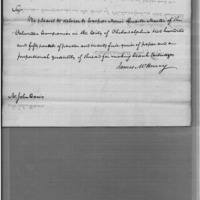 Sir,
Be pleased to deliver to Conyer Mein Quarter Master of the
Volunteer Companies in the City of Philadelphia two hundred
and fifty pounds of powder and twenty five quires of paper and a
proportional quantity of thread for making blank Cartridges
James McHenry
Mr John Harris